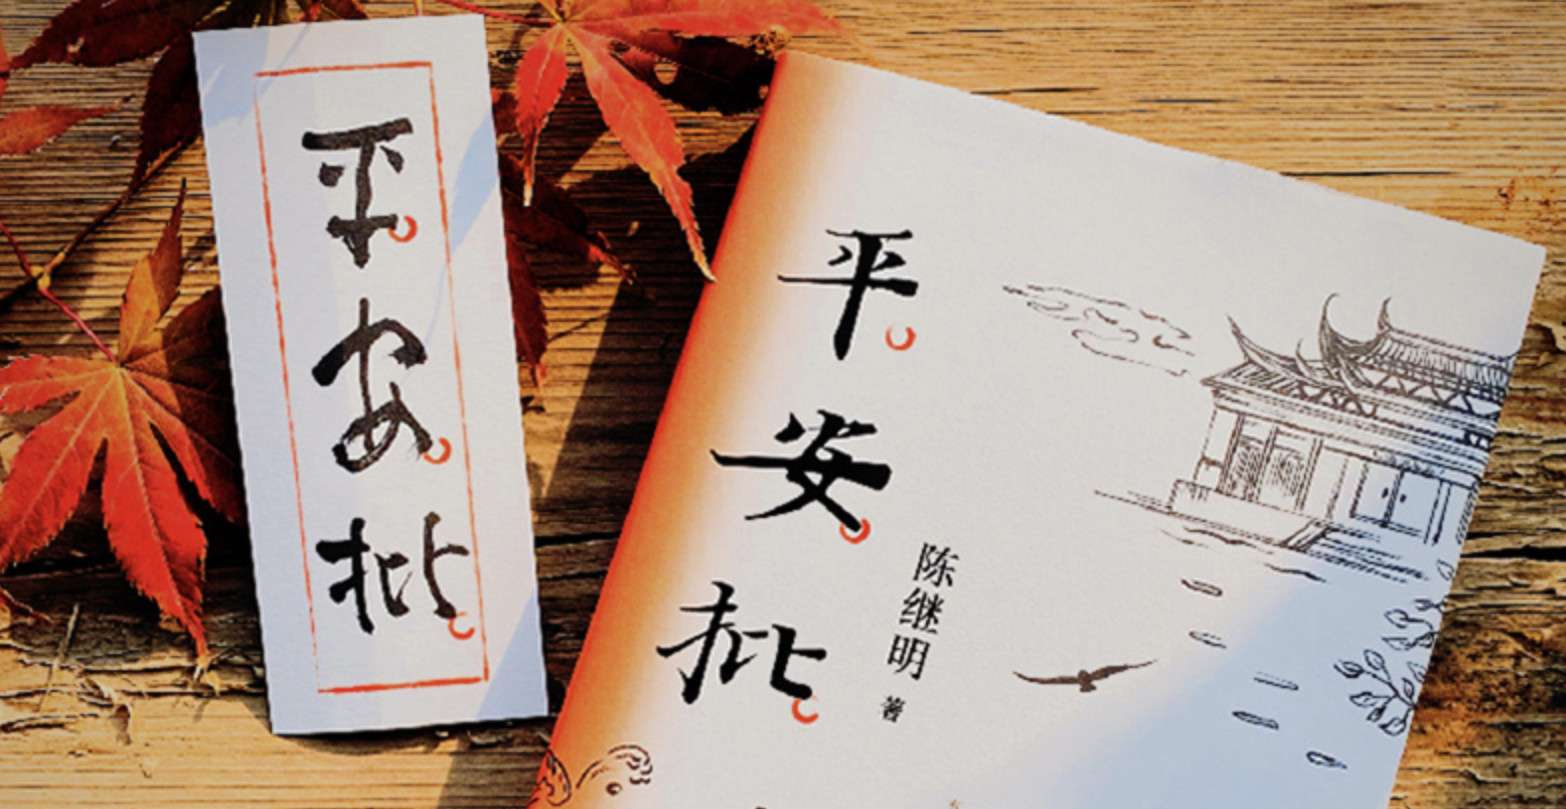 平安批
平安批
陈继明 著